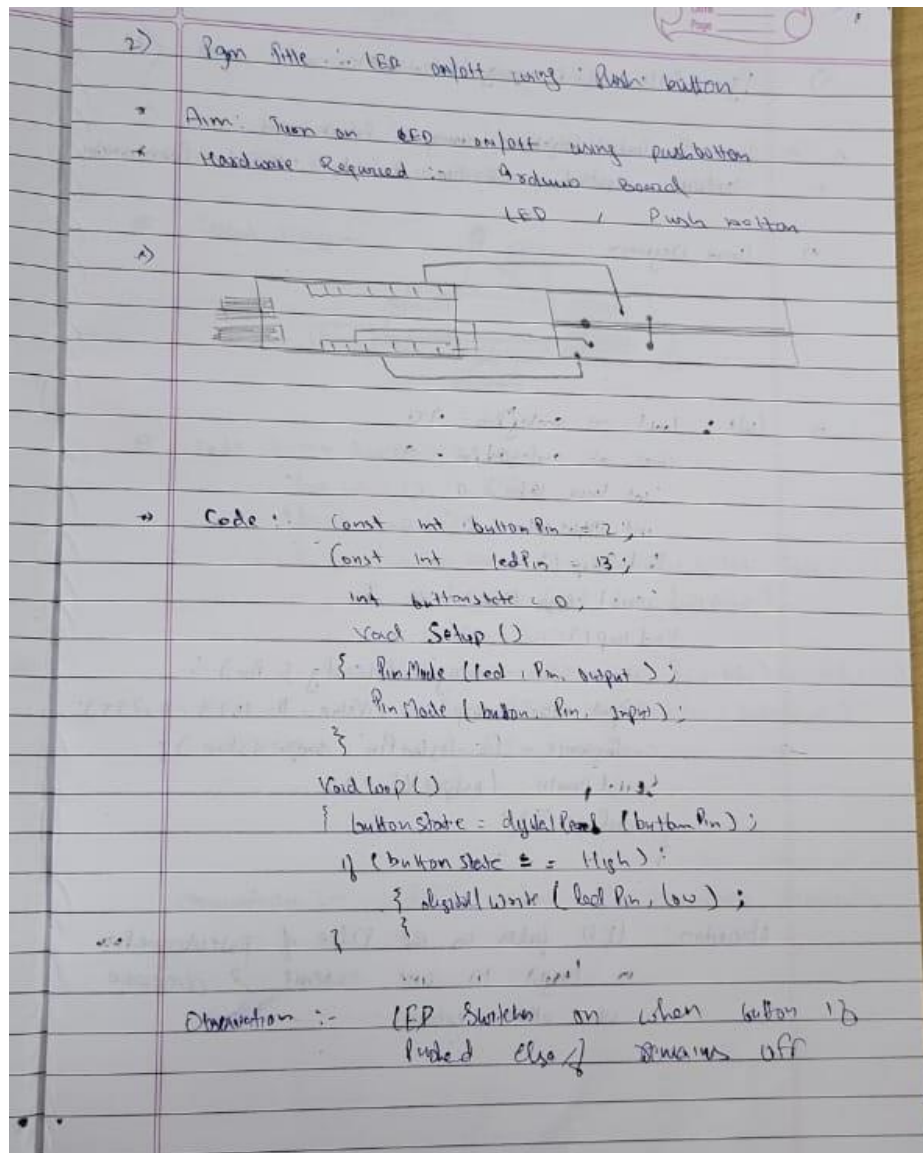 Page
2) Pgm Title :- LED on/off using Push button
* Aim: Turn on LED on/off using pushbotton
* Hardware Required :- Arduno Board
LED , Push botton
Code :- Const int buttonPin = 2;
Const int ledPin = 13;
int buttonstate = 0;
void Setup ()
{ PinMode (led, Pin, output);
PinMode (button, Pin, Input);
}
Void loop ()
{ buttonState = dgital Read (buttonPin);
if (button State = = High):
{ digital Write (led Pin, low);
} }
Observation :- LED Switches on when button is
Pushed else remains off